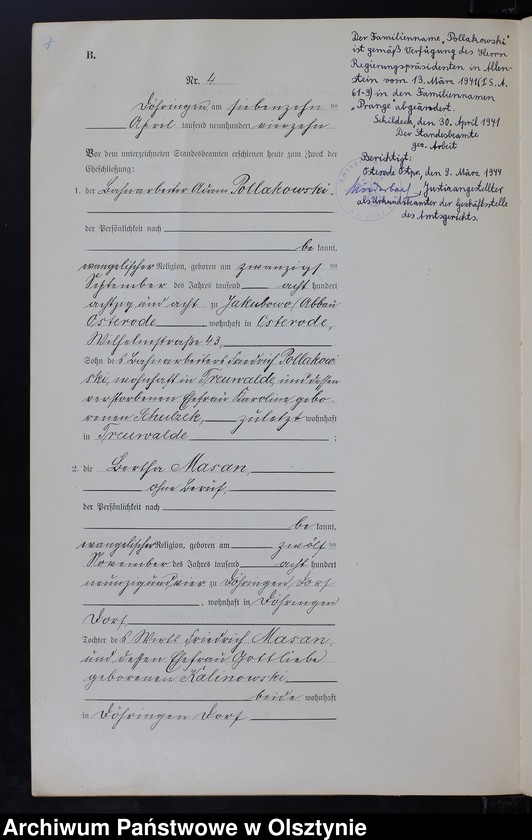 7
B.
Nr. 4
Döhringen am siebenzehn ten
April tausend neunhundert vierzehn
Vor dem unterzeichneten Standesbeamten erschienen heute zum Zweck der
Eheschließung:
1. der Bahnarbeiter Adam Pollakowski,
der Persönlichkeit nach
be kannt,
evangelischer Religion, geboren am zwanzigst ten
September des Jahres tausend acht hundert
achtzig und acht zu Jakubowo/Abbau
Osterode, wohnhaft in Osterode,
Wilhelmstraße 43,
Sohn des Bahnarbeiters Friedrich Pollakow
ski, wohnhaft in Treuwalde, und dessen
verstorbenen Ehefrau Karoline gebo-
renen Schulzek, zuletzt wohnhaft
in Treuwalde ;
2. die Bertha Masan,
ohne Beruf,
der Persönlichkeit nach
be kannt,
evangelischer Religion, geboren am zwölf ten
November des Jahres tausend acht hundert
neunzig und vier zu Döhringen Dorf
, wohnhaft in Döhringen
Dorf,
Tochter des Wirts Friedrich Masan,
und dessen Ehefrau Gottliebe
geborenen Kalinowski
beide wohnhaft
in Döhringen Dorf
Der Familienname „Pollakowski"
ist gemäß Verfügung des Herrn
Regierungspräsidenten in Allen-
stein vom 13. März 1941 (I S. A.
61-9) in den Familiennamen
„Prange" abgeändert.
Schildeck, den 30. April 1941
Der Standesbeamte
gez. Arbeit
Berichtigt:
Osterode Ostpr., den 9. März 1944
Justizangestellter
als Urkundsbeamter der Geschäftsstelle
des Amtsgerichts.
Archiwum Państwowe w Olsztynie